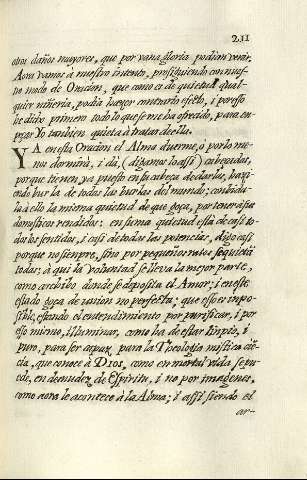 211
otros daños mayores, que por vana gloria podian venir.
Aora vamos à nuestro intento, prosiguiendo con nues-
tro modo de Oracion, que como es de quietud qual-
quier niñeria, podia hazer contrario efeto, i por esso
he dicho primero todo lo que se me ha ofrecido, para em-
pezar Yo tambien quieta à tratar de ella.
YA en esta Oracion el Alma duerme, ò por lo me-
nos dormita, i dà, (digamoslo assi) cabezadas,
porque tienen ya puesto en su cabeza de darlas, hazi-
endo burla de todas las burlas del mundo; combida-
la à ello la misma quietud de que goza, por tener à sus
domesticos rendidos: en suma quietud està de casi to-
dos los sentidos, i casi de todas las potencias, digo casi
porque no siempre, sino por pequeños ratos se quietan
todas; à qui la voluntad se lleva la mejor parte,
como archibo, donde se deposita el Amor; i en este
estado goza de union no perfecta; que esso es impo-
sible, estando el entendimiento por purificar, i por
esso mismo, illuminar, como ha de estar limpio, i
puro, para ser capaz, para la Theologia mistica cie-
cia, que conoce à DIOS, como en mortal vida se pu-
ede, en desnudez de Espiritu, i no por imagenes,
como aora le acontece à la Alma; i assi siendo el
ar-